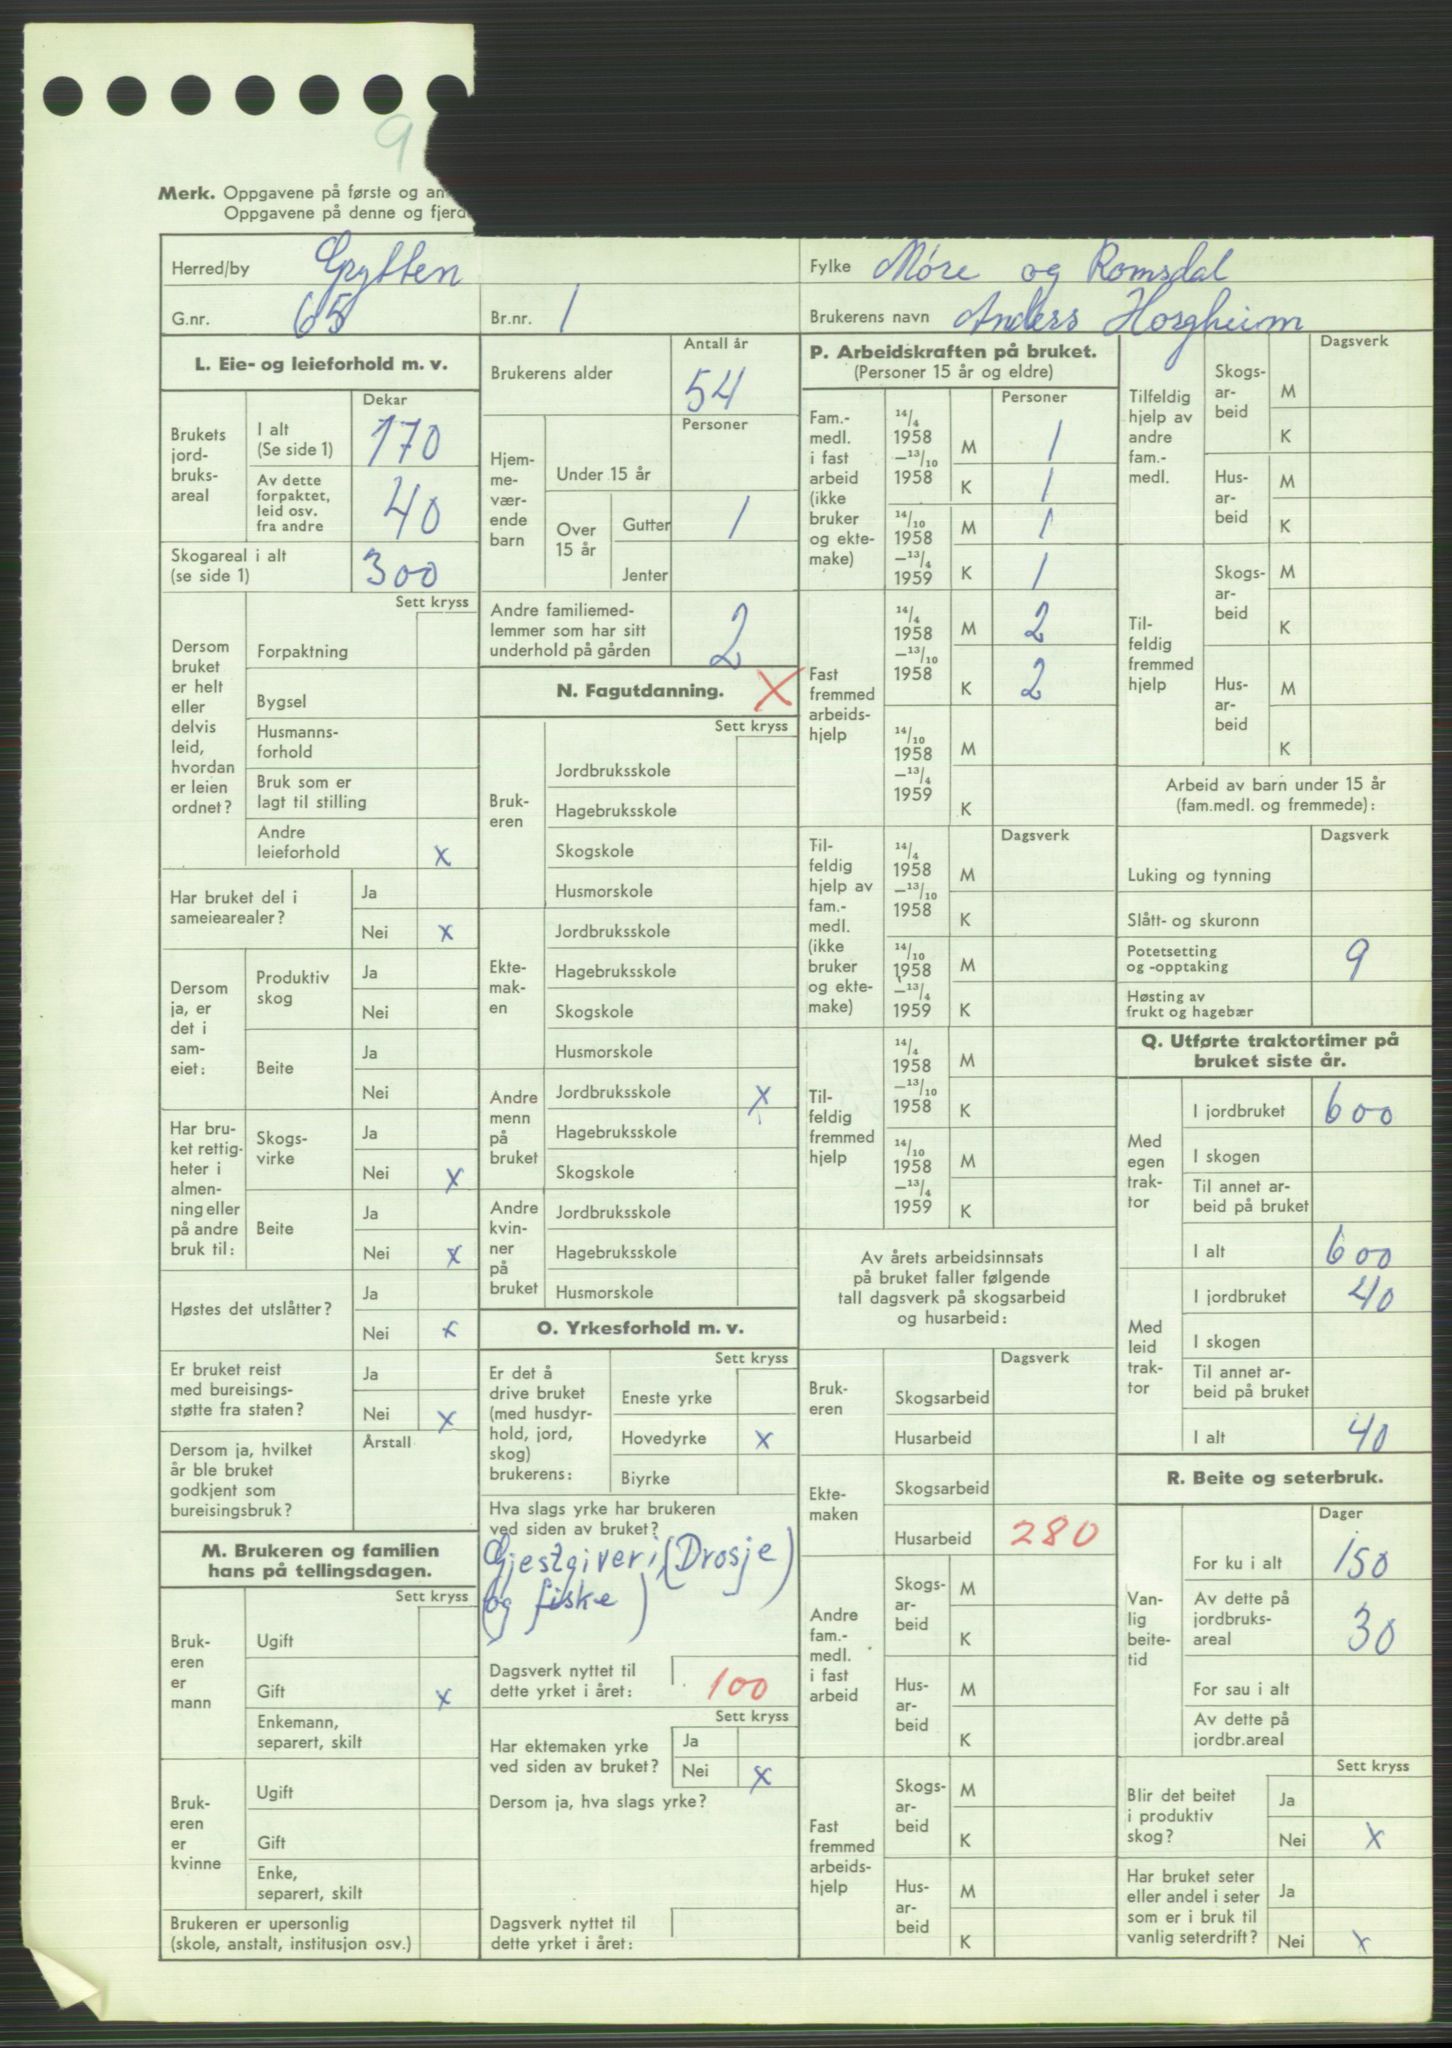 9
Merk. Oppgavene på første og an
Oppgavene på denne og fjerd
Herred/by Grytten
Fylke Møre og Romsdal
G.nr. 65 Br.nr. 1
Brukerens navn Anders Horgheim
L. Eie- og leieforhold m. v.
Dekar
Brukets jord- bruks- areal
I alt (Se side 1) 170
Av dette forpaktet, leid osv. fra andre 40
Skogareal i alt (se side 1) 300
Sett kryss
Dersom bruket er helt eller delvis leid, hvordan er leien ordnet?
Forpaktning
Bygsel
Husmanns- forhold
Bruk som er lagt til stilling
Andre leieforhold x
Har bruket del i sameiearealer?
Ja
Nei x
Dersom ja, er det i sam- eiet:
Produktiv skog
Ja
Nei
Beite
Ja
Nei
Har bru- ket rettig- heter i almen- ning eller på andre bruk til:
Skogs- virke
Ja
Nei x
Beite
Ja
Nei x
Høstes det utslåtter?
Ja
Nei x
Er bruket reist med bureisings- støtte fra staten?
Ja
Nei x
Dersom ja, hvilket år ble bruket godkjent som bureisingsbruk?
Årstall
M. Brukeren og familien
hans på tellingsdagen.
Sett kryss
Bruk- eren er mann
Ugift
Gift x
Enkemann, separert, skilt
Bruk- eren er kvinne
Ugift
Gift
Enke, separert, skilt
Brukeren er upersonlig
(skole, anstalt, institusjon osv.)
Antall år
Brukerens alder 54
Personer
Hjem- me- vær- ende barn
Under 15 år
Over 15 år
Gutter 1
Jenter
Andre familiemed- lemmer som har sitt underhold på gården 2
N. Fagutdanning. X
Sett kryss
Bruk- eren
Jordbruksskole
Hagebruksskole
Skogskole
Husmorskole
Ekte- mak- en
Jordbruksskole
Hagebruksskole
Skogskole
Husmorskole
Andre menn på bruket
Jordbruksskole x
Hagebruksskole
Skogskole
Andre kvin- ner på bruket
Jordbruksskole
Hagebruksskole
Husmorskole
O. Yrkesforhold m. v.
Sett kryss
Er det å drive bruket (med husdyr- hold, jord, skog) brukerens:
Eneste yrke
Hovedyrke x
Biyrke
Hva slags yrke har brukeren
ved siden av bruket?
Gjestgiveri, (Drosje)
(og fiske)
Dagsverk nyttet til dette yrket i året: 100
Sett kryss
Har ektemaken yrke ved siden av bruket?
Ja
Nei x
Dersom ja, hva slags yrke?
Dagsverk nyttet til dette yrket i året:
P. Arbeidskraften på bruket.
(Personer 15 år og eldre)
Personer
Fam.- medl. i fast arbeid (ikke bruker og ekte- make)
14/4 1958 –13/10 1958
M 1
K 1
14/10 1958 –13/4 1959
M 1
K 1
Fast fremmed arbeids- hjelp
14/4 1958 –13/10 1958
M 2
K 2
14/10 1958 –13/4 1959
M
K
Dagsverk
Til- feldig hjelp av fam.- medl. (ikke bruker og ekte- make)
14/4 1958 –13/10 1958
M
K
14/10 1958 –13/4 1959
M
K
Til- feldig fremmed hjelp
14/4 1958 –13/10 1958
M
K
14/10 1958 –13/4 1959
M
K
Av årets arbeidsinnsats
på bruket faller følgende
tall dagsverk på skogsarbeid
og husarbeid:
Dagsverk
Bruk- eren
Skogsarbeid
Husarbeid
Ekte- maken
Skogsarbeid
Husarbeid 280
Andre fam.- medl. i fast arbeid
Skogs- ar- beid
M
K
Hus- ar- beid
M
K
Fast fremmed arbeids- hjelp
Skogs- ar- beid
M
K
Hus- ar- beid
M
K
Dagsverk
Tilfeldig hjelp av andre fam.- medl.
Skogs- ar- beid
M
K
Hus- ar- beid
M
K
Til- feldig fremmed hjelp
Skogs- ar- beid
M
K
Hus- ar- beid
M
K
Arbeid av barn under 15 år
(fam.medl. og fremmede):
Dagsverk
Luking og tynning
Slått- og skuronn
Potetsetting og -opptaking 9
Høsting av frukt og hagebær
Q. Utførte traktortimer på
bruket siste år.
Med egen trak- tor
I jordbruket 600
I skogen
Til annet ar- beid på bruket
I alt 600
Med leid trak- tor
I jordbruket 40
I skogen
Til annet ar- beid på bruket
I alt 40
R. Beite og seterbruk.
Dager
Van- lig beite- tid
For ku i alt 150
Av dette på jordbruks- areal 30
For sau i alt
Av dette på jordbr.areal
Sett kryss
Blir det beitet i produktiv skog?
Ja
Nei x
Har bruket seter eller andel i seter som er i bruk til vanlig seterdrift?
Ja
Nei x